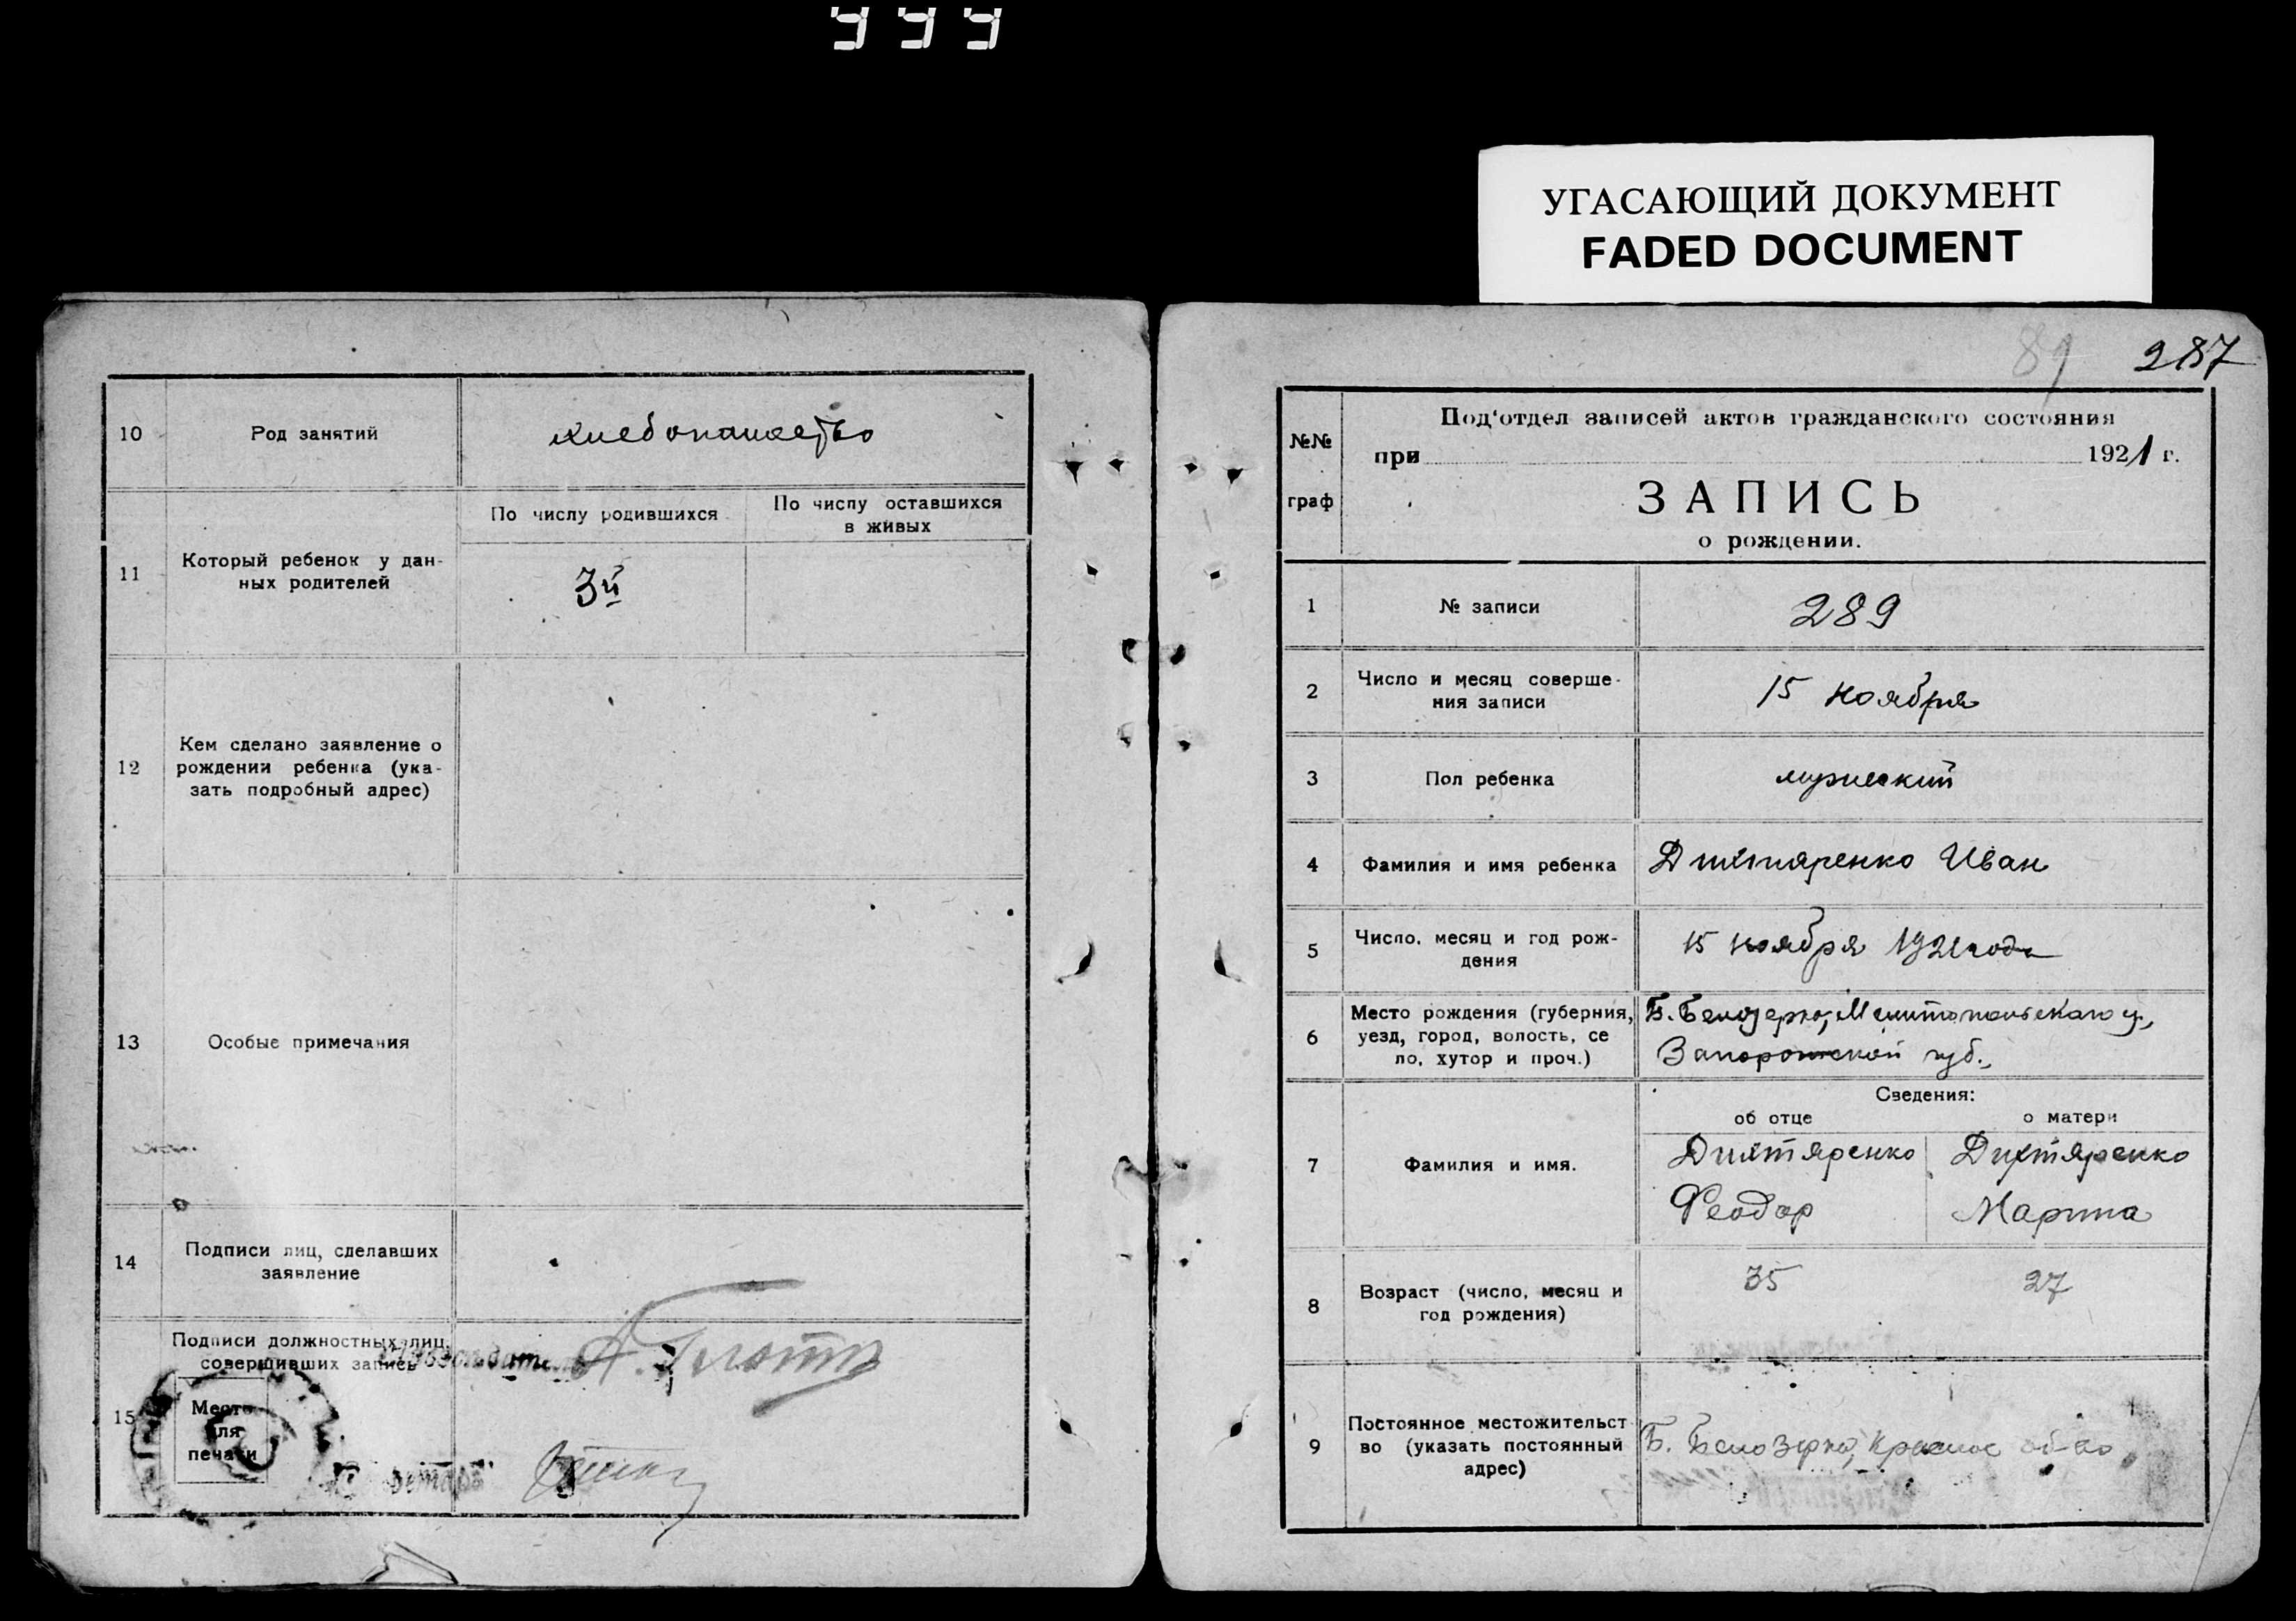 999
УГАСАЮЩИЙ ДОКУМЕНТ
FADED DOCUMENT
10 Род занятий хлебопашество
11 Который ребенок у дан-
ных родителей
По числу родившихся
По числу оставшихся
в живых
3й
12 Кем сделано заявление о
рождении ребенка (ука-
зать подробный адрес)
13 Особые примечания
14 Подписи лиц, сделавших
заявление
15 Подписи должностных лиц,
совершивших запись
Место
для
печати
89 287
№№
граф
Под'отдел записей актов гражданского состояния
при 1921 г.
ЗАПИСЬ
о рождении.
1 № записи 289
2 Число и месяц соверше-
ния записи
15 ноября
3 Пол ребенка мужеский
4 Фамилия и имя ребенка Дихтяренко Иван
5 Число, месяц и год рож-
дения
15 ноября 1921 года
6 Место рождения (губерния,
уезд, город, волость, се
ло, хутор и проч.)
Б. Белозерка, Мелитопольскаго у.,
Запорожской губ.,
Сведения:
об отце о матери
7 Фамилия и имя.
Дихтяренко Дихтяренко
Феодор Марина
8 Возраст (число, месяц и
год рождения)
35 27
9 Постоянное местожительст
во (указать постоянный
адрес)
Б. Белозерка,